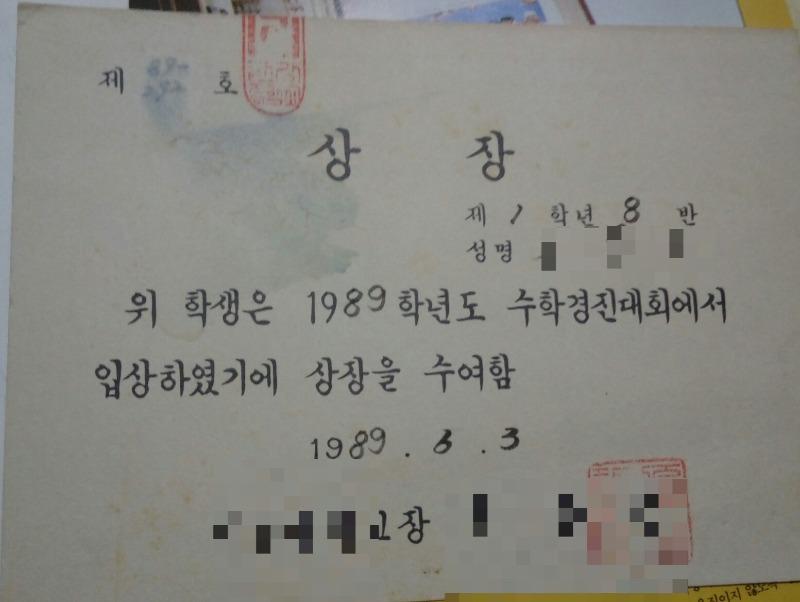 제 호
상 장
제 1 학년 8 반
성명
위 학생은 1989학년도 수학경진대회에서
입상하였기에 상장을 수여함
1989 . 6 . 3
장